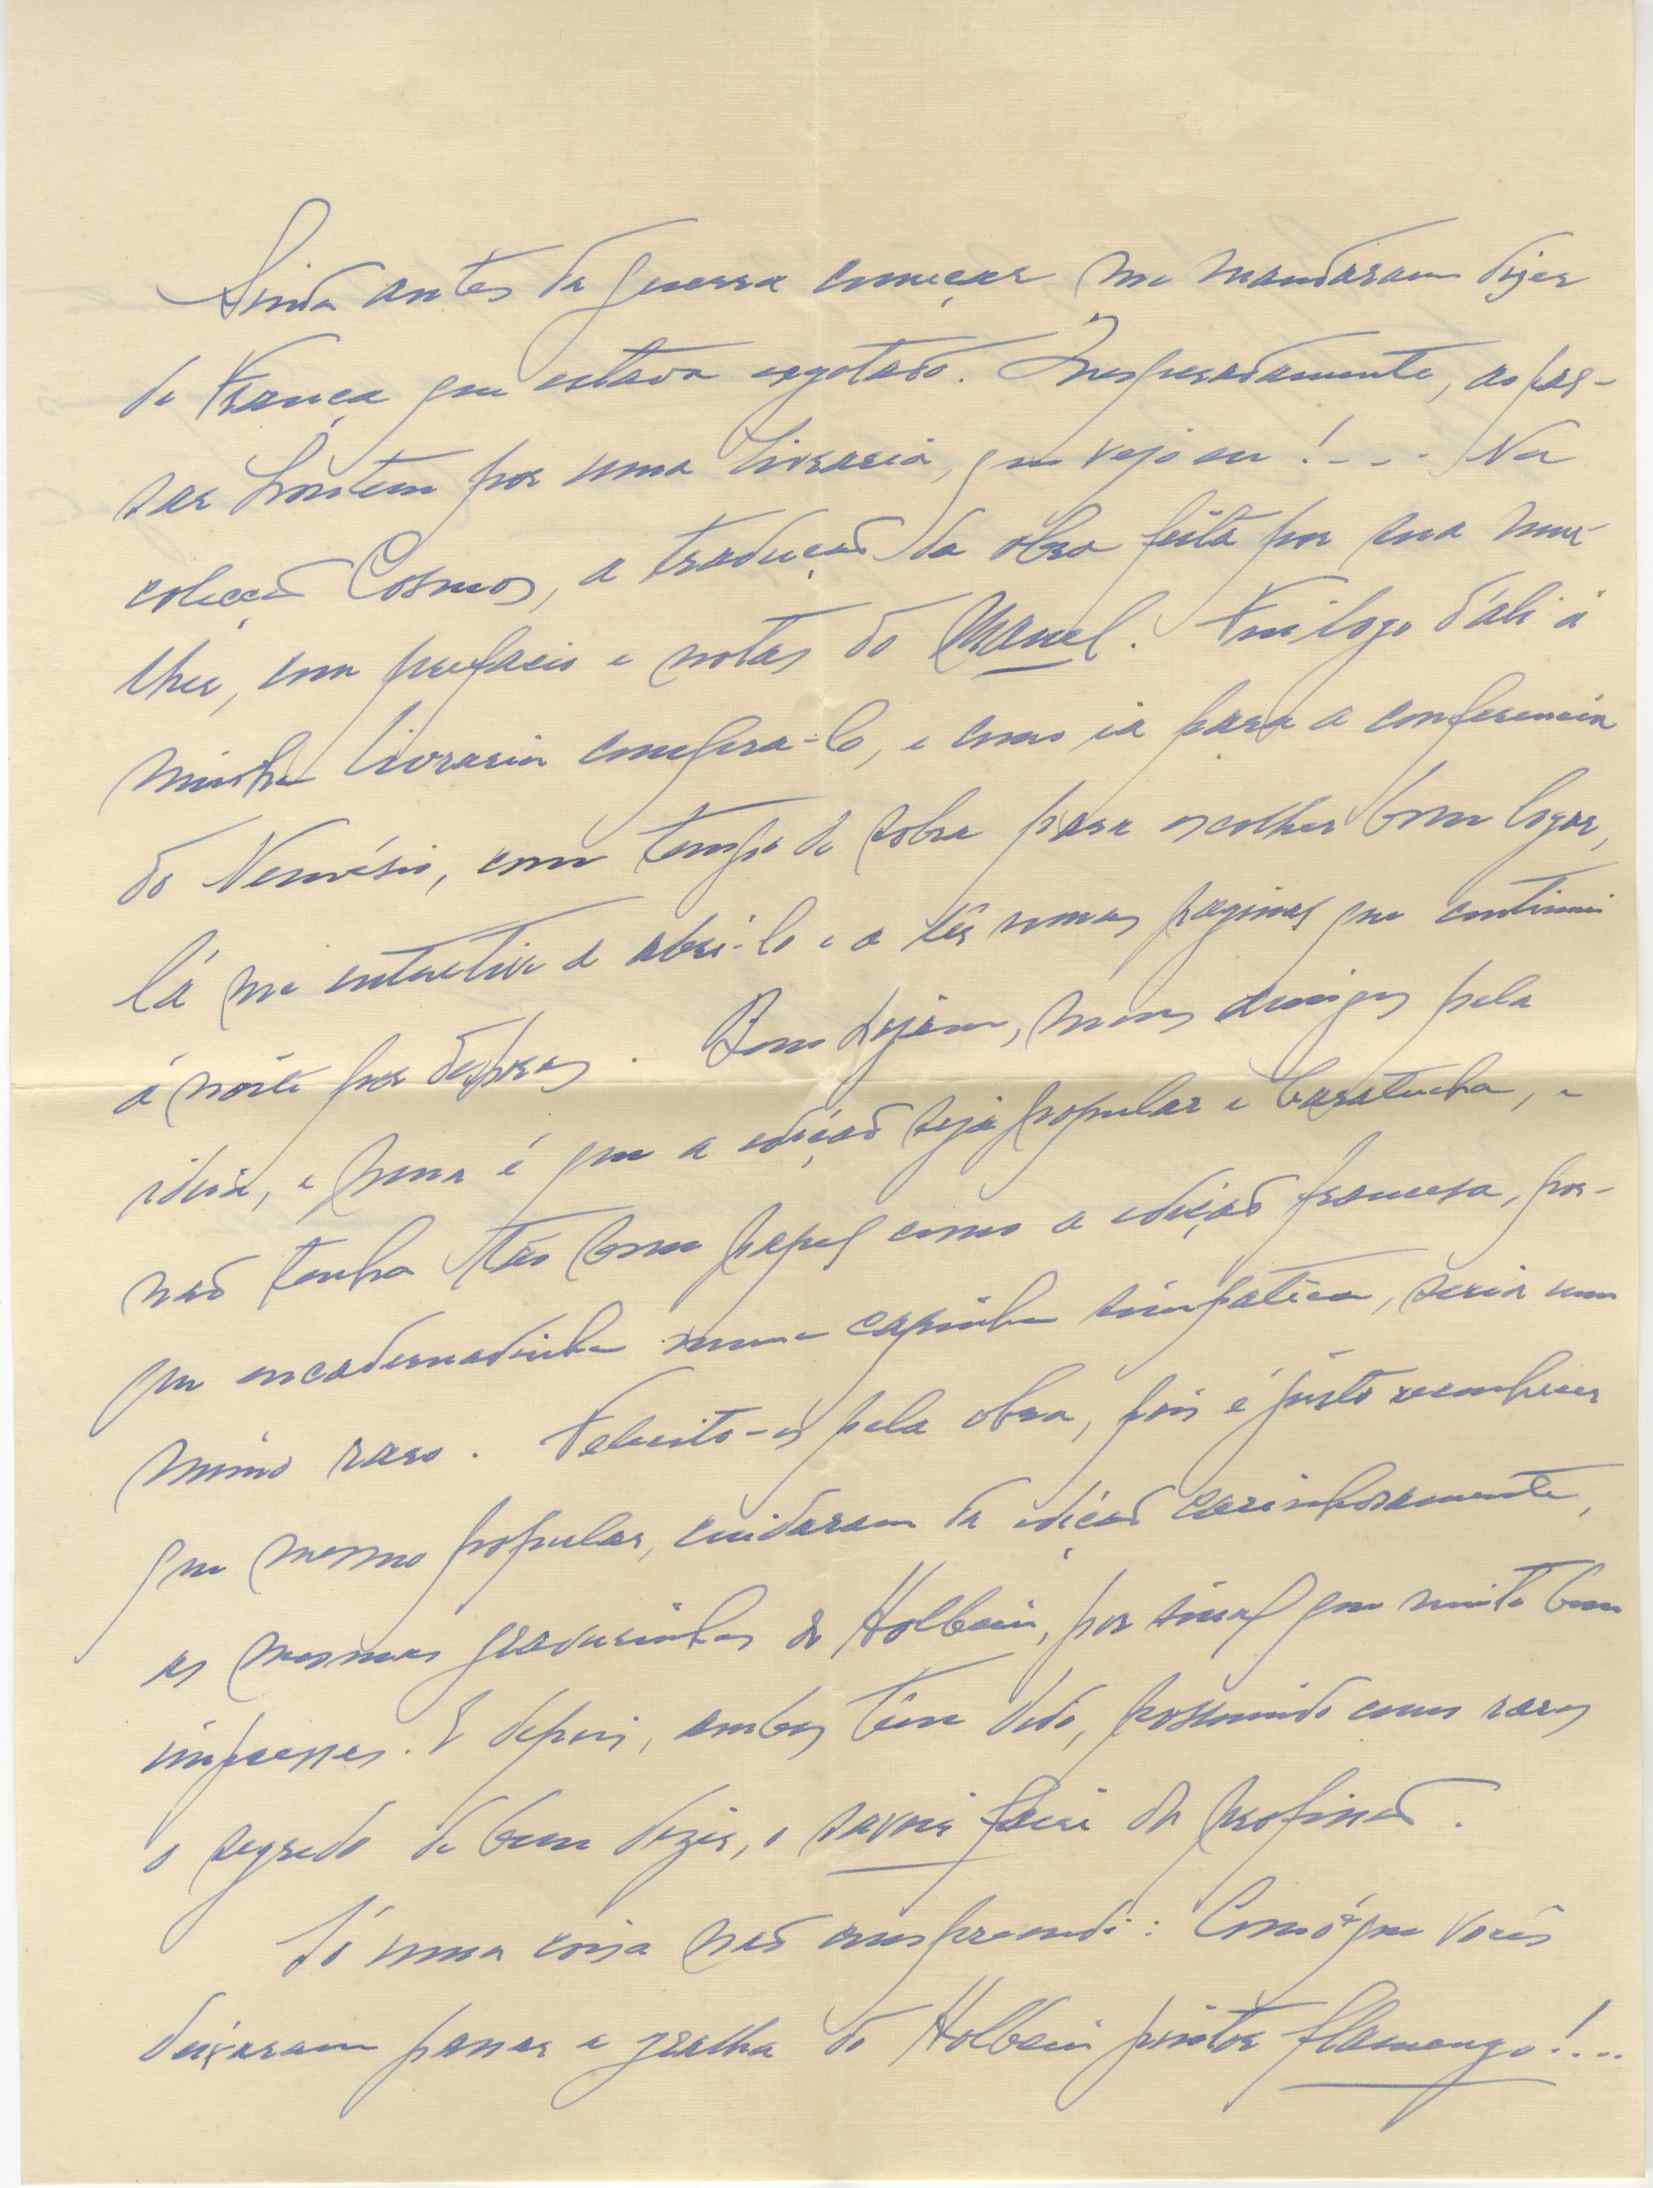 Ainda antes da guerra começar me mandaram dizer
de França que estava esgotado. Inesperadamente, ao pas-
sar hontem por uma livraria, que vejo eu!... Na
colecçaõ Cosmos, a traducçaõ da obra feita por sua mu-
lher, com prefacio e notas do Manuel. Fui logo d'ali á
minha livraria compra-lo, e como ia para a conferencia
do Nemésio, com tempo de sobra para escolher bom logar,
lá me entretive a abri-lo e a lêr umas paginas que continuei
á noite por deshoras. Bem hajam, meus amigos pela
ideia, e pena é que a ediçaõ seja popular e baratucha, e
naõ tenha tão bom papel como a ediçaõ francesa, por-
que encadernadinha numa capinha simpatica, seria um
mimo raro. Felicito-os pela obra, pois é justo reconhecer
que mesmo popular, cuidaram da ediçaõ carinhosamente,
as mesmas gravurinhas de Holbein, por sinal que muito bem
impresses. E depois, ambos têm dedo, possuindo como raros
o segredo de bem dizer, o savoir faire da profissaõ.
Só uma coisa naõ compreendi: Como é que vocês
deixaram passar a gralha do Holbein pintor flamengo!...